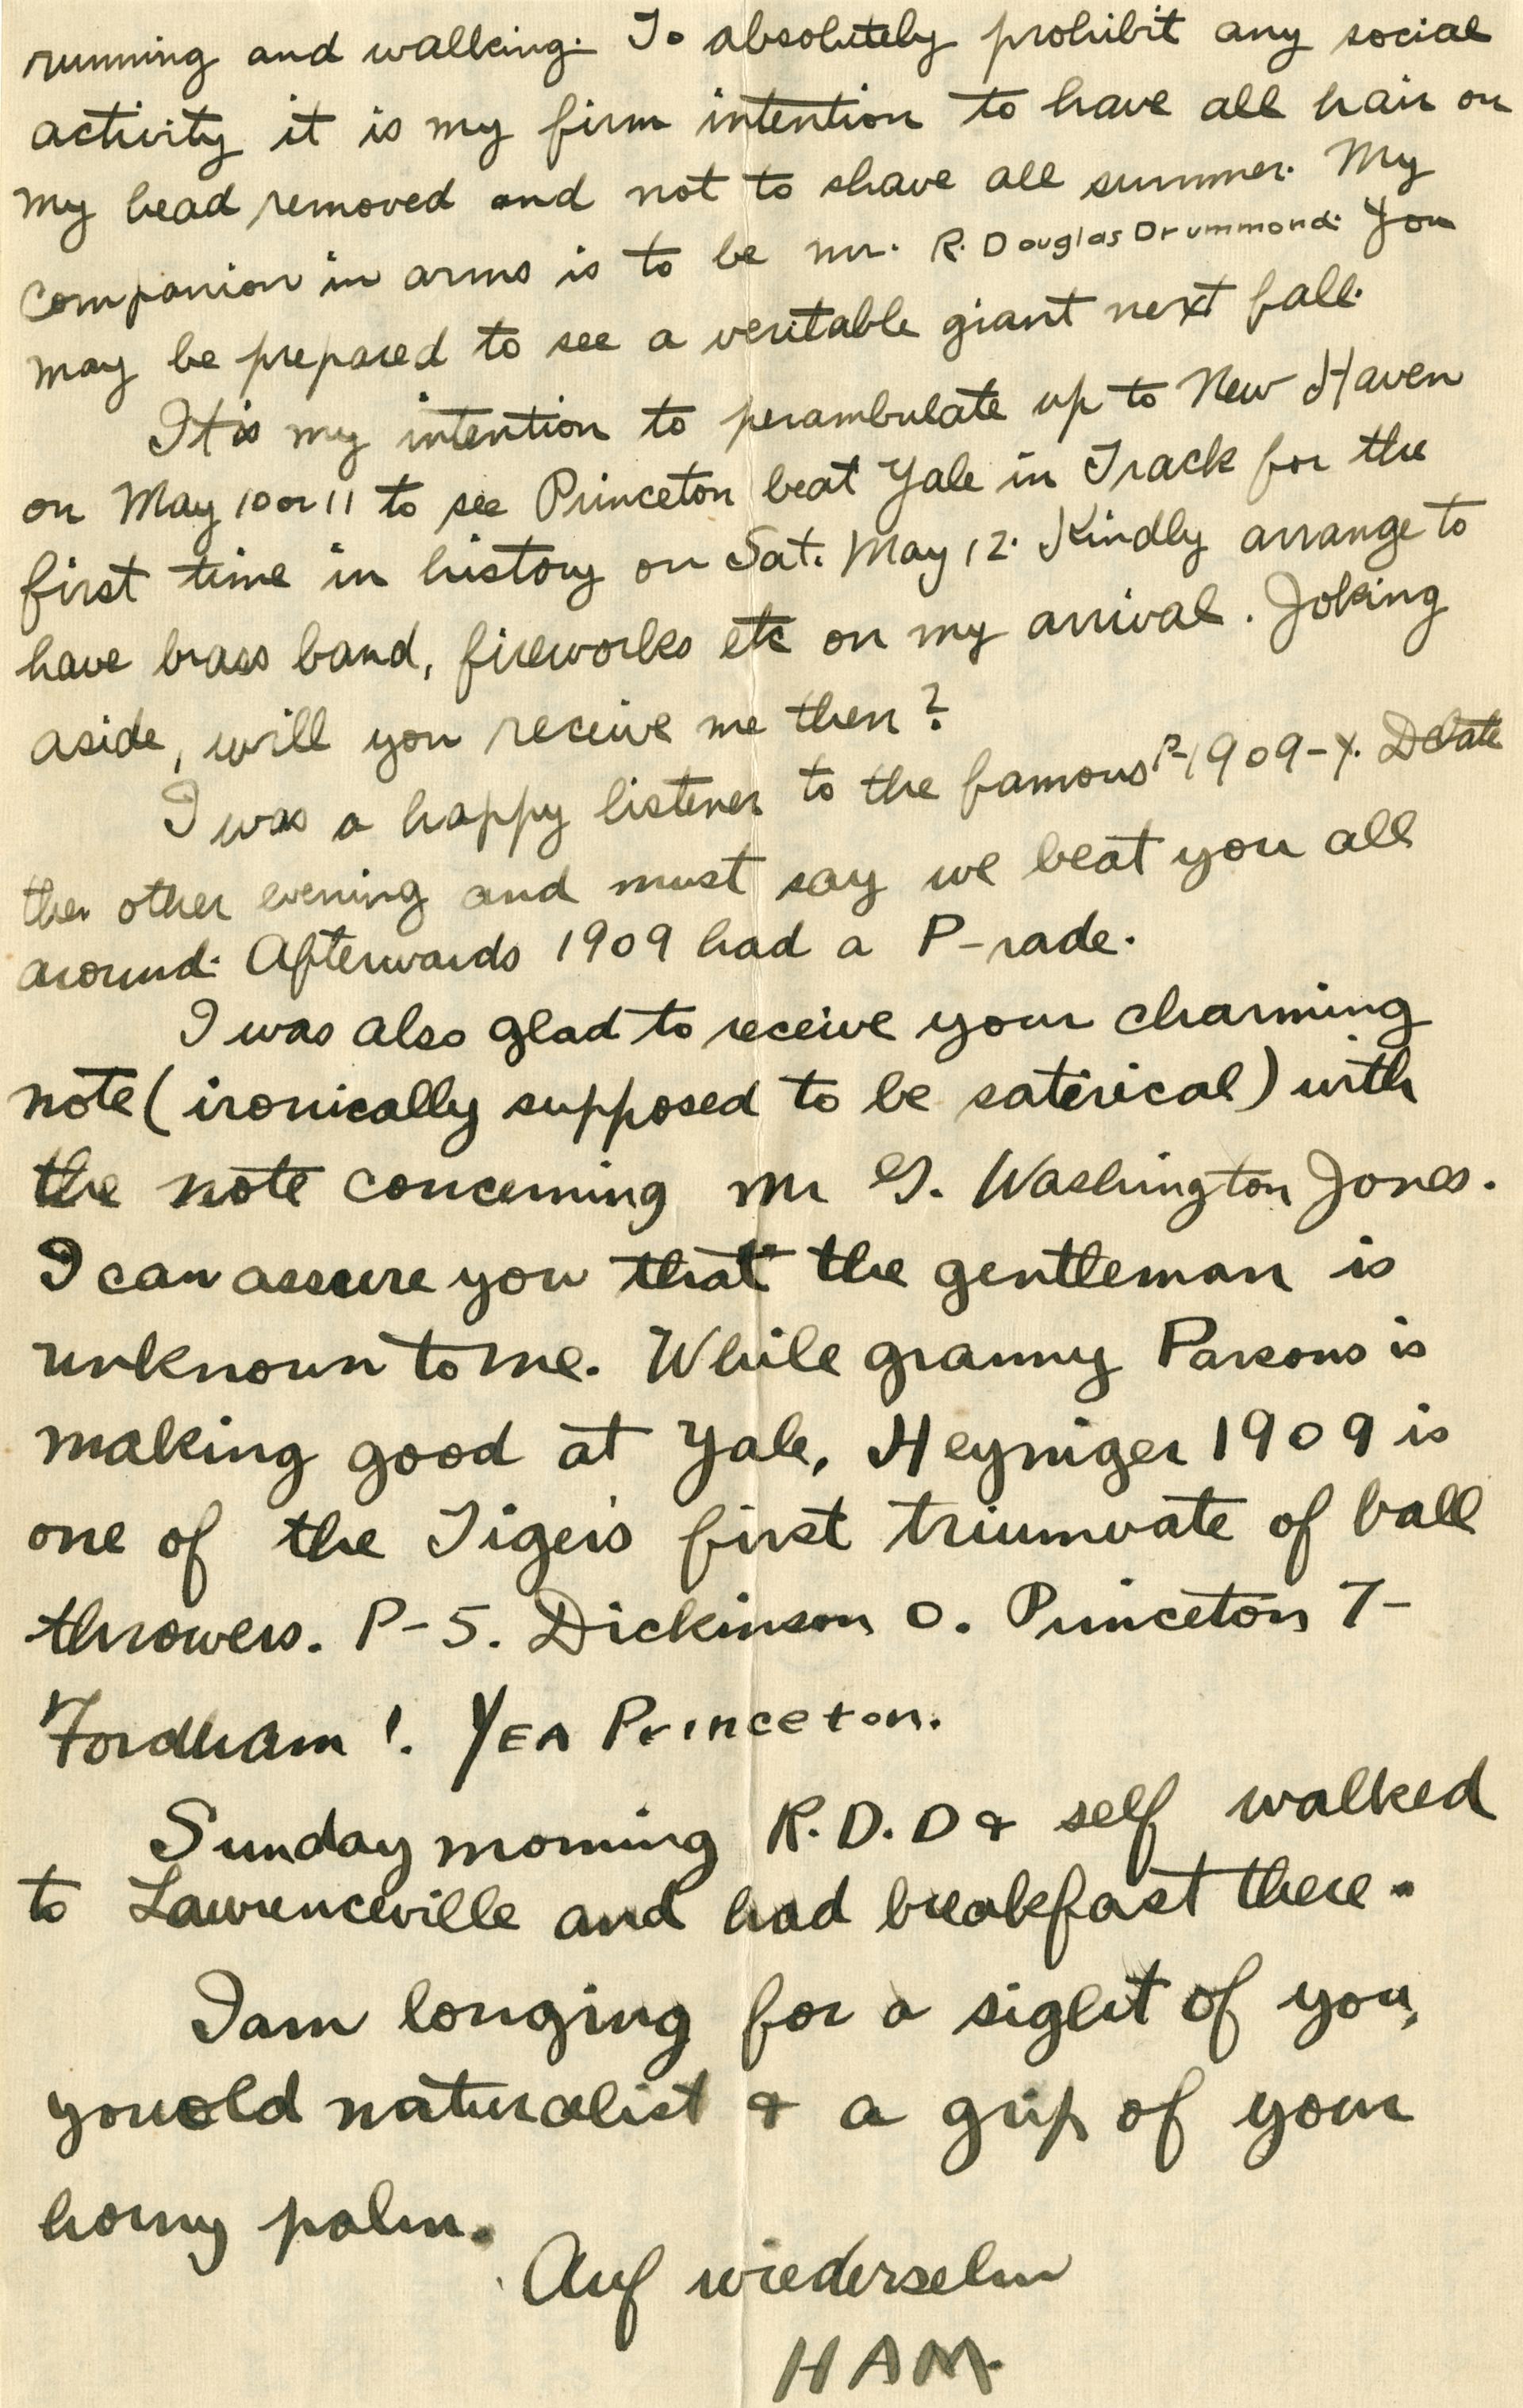 running and walking. To absolutely prohibit any social
activity it is my firm intention to have all hair on
my head removed and not to shave all summer. My
companion in arms is to be mr. R. Douglas Drummond. You
may be prepared to see a veritable giant next fall.
It is my intention to perambulate up to New Haven
on May 10 or 11 to see Princeton beat Yale in Track for the
first time in history on Sat. May 12. Kindly arrange to
have brass band, fireworks etc on my arrival. Joking
aside, will you receive me then?
I was a happy listener to the famous P-1909-Y. Debate
the other evening and must say we beat you all
around. Afterwards 1909 had a P-rade.
I was also glad to receive your charming
note (ironically supposed to be satirical) with
the note concerning Mr G. Washington Jones.
I can assure you that the gentleman is
unknown to me. While granny Parsons is
making good at Yale, Heyniger 1909 is
one of the Tiger's first triumvate of ball
throwers. P-5. Dickinson 0. Princeton 7-
Fordham 1. YEA Princeton.
Sunday morning R.D.D & self walked
to Lawrenceville and had breakfast there.
I am longing for a sight of you,
you old naturalist & a grip of your
horny palm.
Auf wiedersehn
HAM.